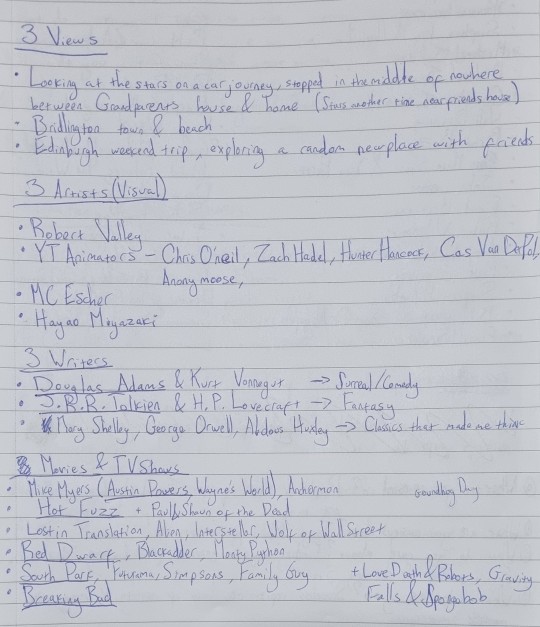 3 Views
• Looking at the stars on a car journey, stopped in the middle of nowhere
between Grandparents house & home (Stars another time near friends house)
• Bridlington town & beach
• Edinburgh weekend trip, exploring a random new place with friends
3 Artists (Visual)
• Robert Valley
• YT Animators - Chris O'neil, Zach Hadel, Hunter Hancock, Cas Van De Pol,
Anonymoose,
• MC Escher
• Hayao Miyazaki
3 Writers
• Douglas Adams & Kurt Vonnegut → Surreal/Comedy
• J.R.R. Tolkien & H.P. Lovecraft → Fantasy
• Mary Shelley, George Orwell, Aldous Huxley → Classics that made me think
Movies & TV Shows
• Mike Myers (Austin Powers, Wayne's World), Anchorman Groundhog Day
• Hot Fuzz + Paul & Shaun of the Dead
• Lost in Translation, Alien, Interstellar, Wolf of Wall Street
• Red Dwarf, Blackadder, Monty Python
• South Park, Futurama, Simpsons, Family Guy + Love Death & Robots, Gravity
• Breaking Bad Falls & Spongebob